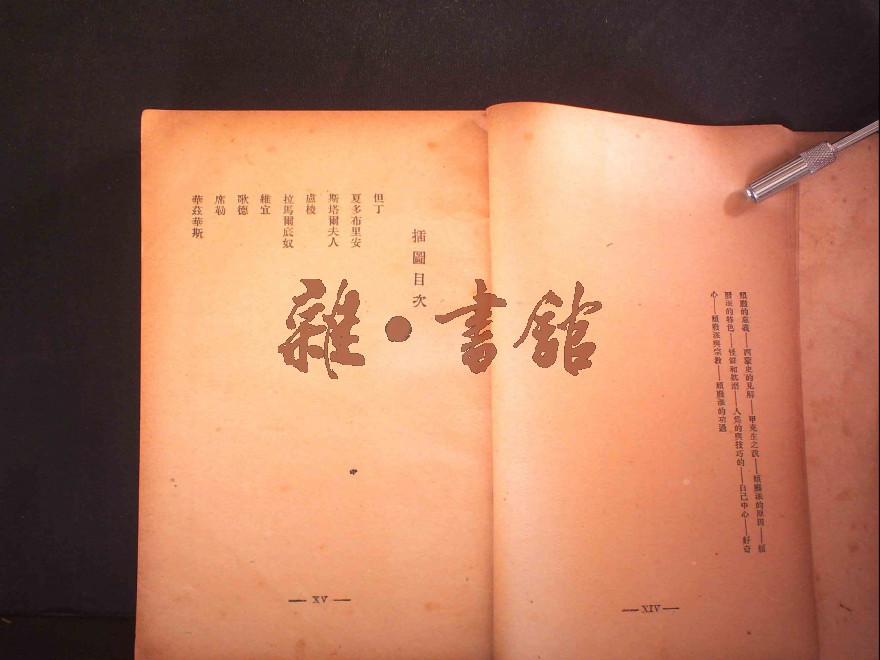 頹廢的意義——西蒙史的見解——甲克生之說——頹廢派的原因——頹
廢派的特色——怪僻和紈㳫——人爲的與技巧的——自己中心——好奇
心——頹廢派與宗教——頹廢派的功過
—XIV—
插圖目次
但丁
夏多布里安
斯塔爾夫人
盧梭
拉馬爾底奴
維宜
歌德
席勒
華茲華斯
—XV—
雜·書館